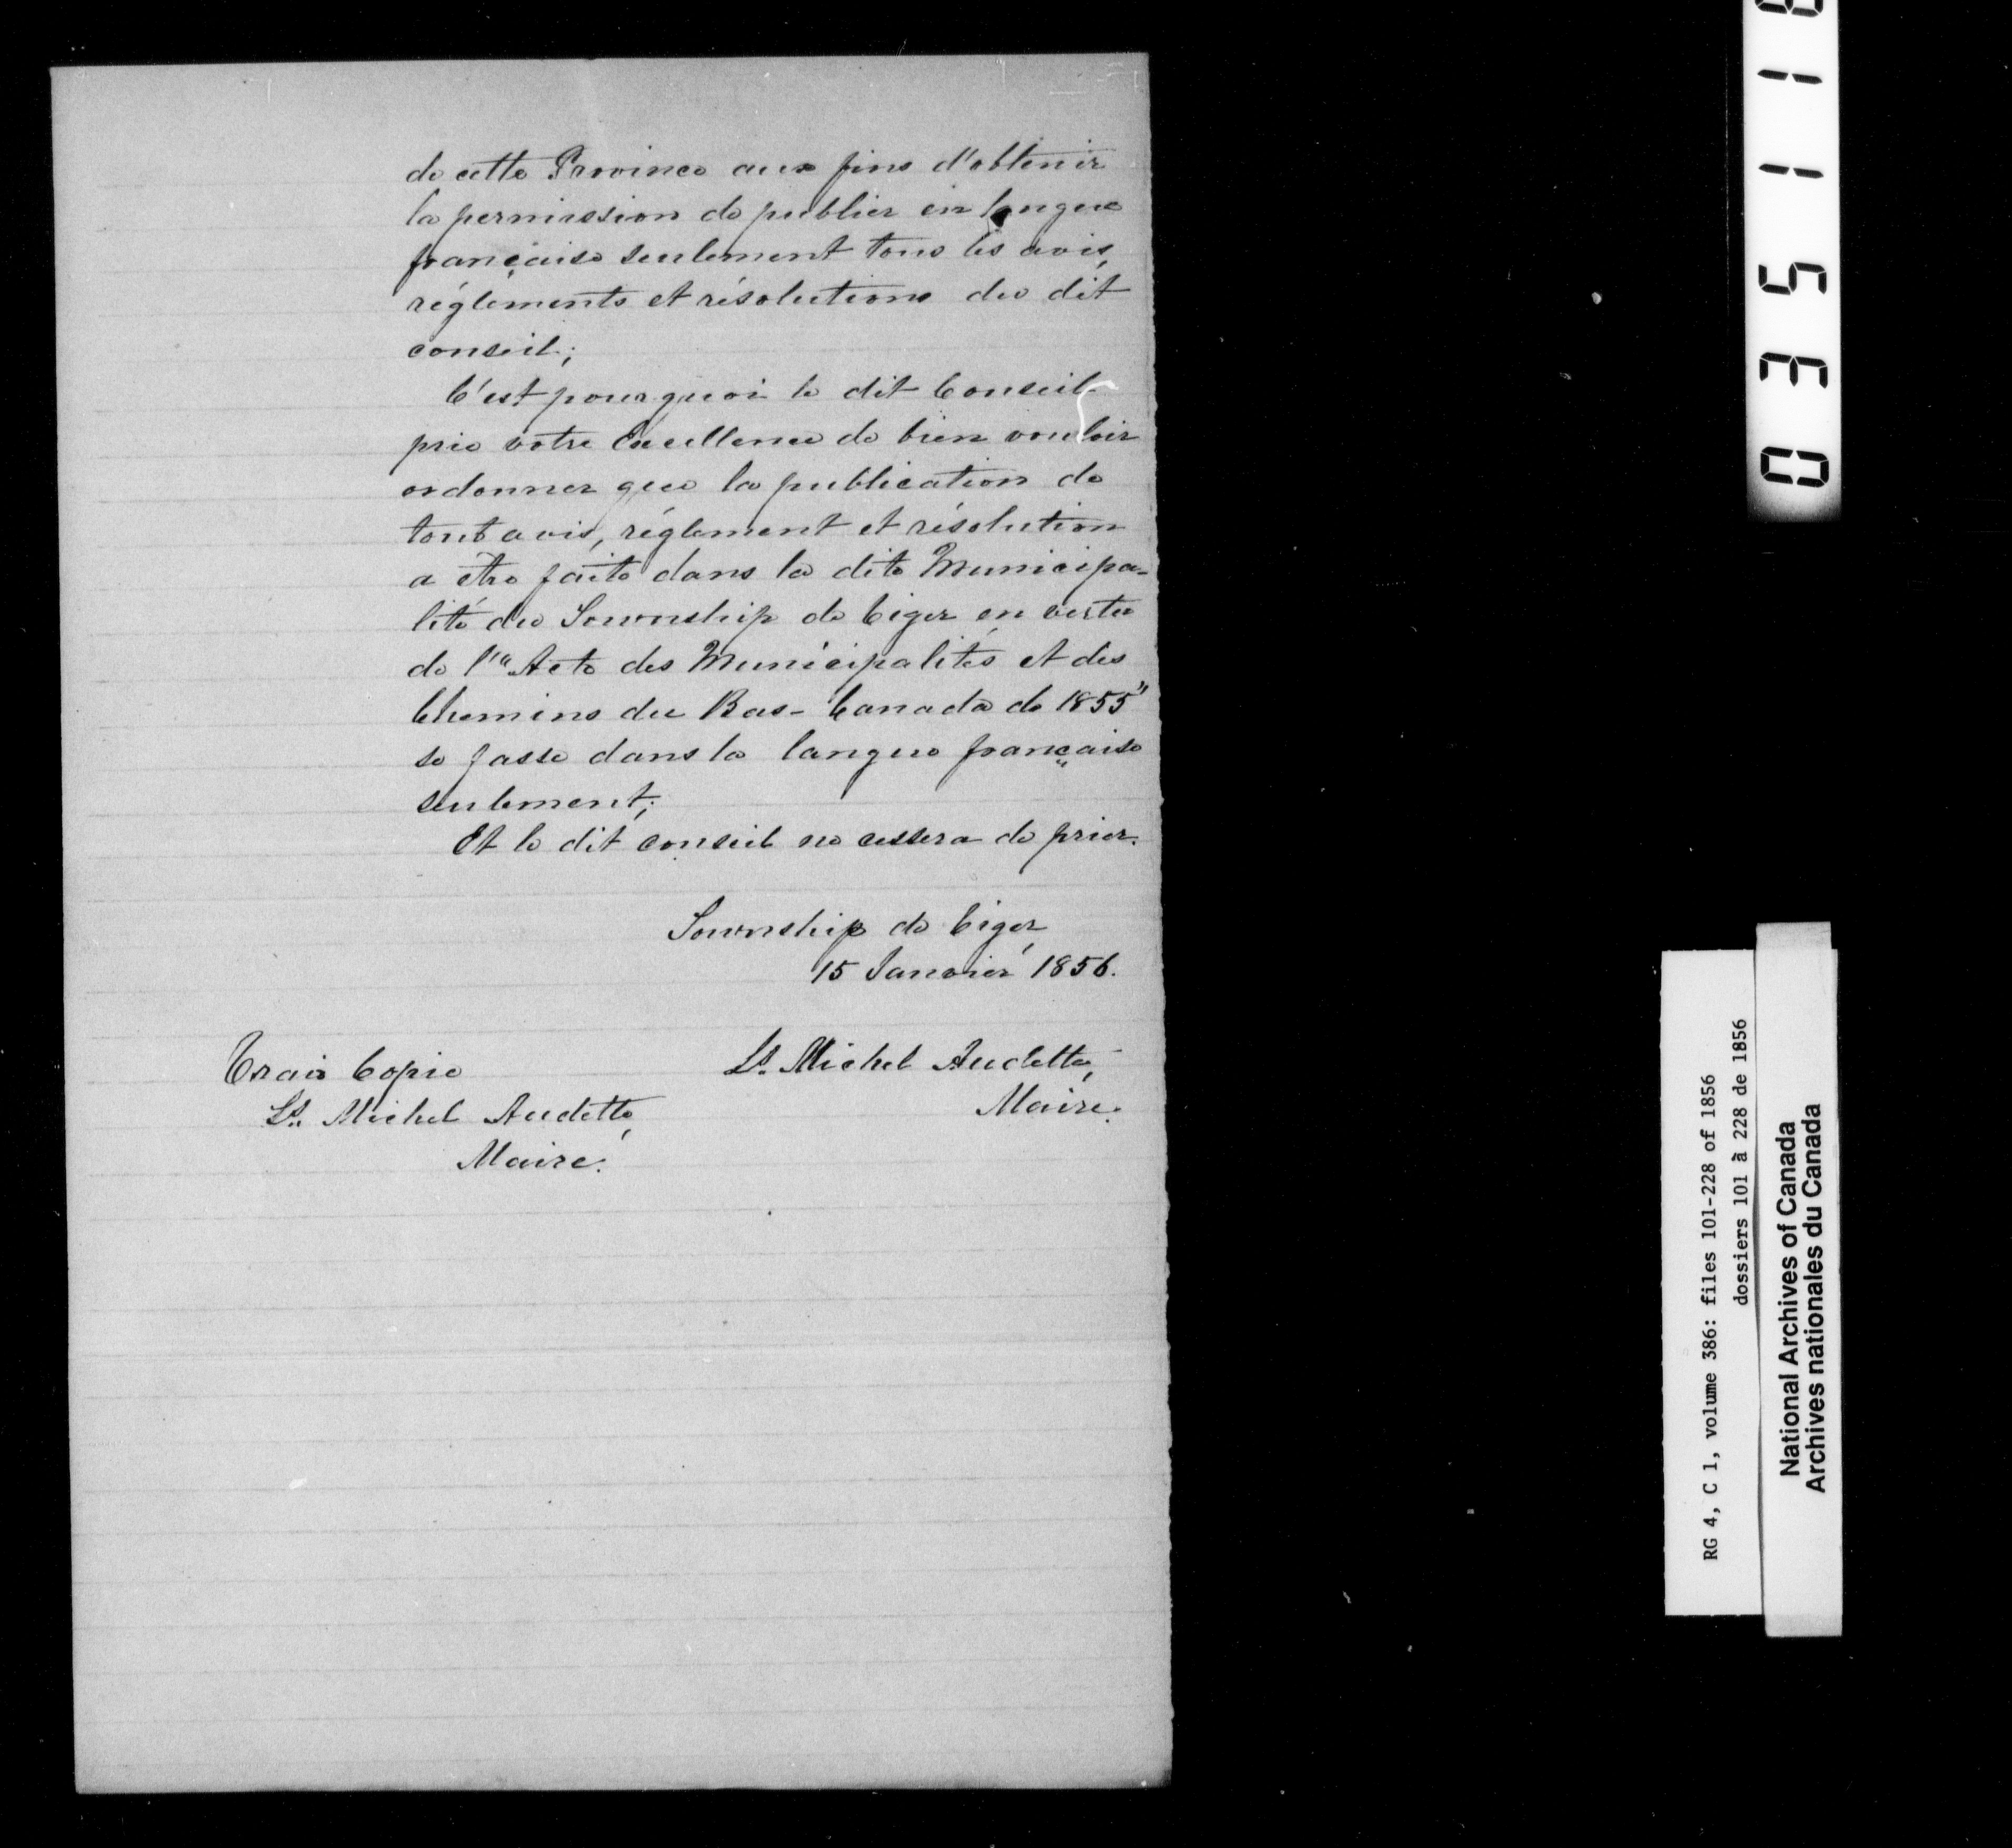 de cette Province aux fins d'obtenir
la permission de publier en langue
française seulement tous les avis,
réglements et résolutions du dit
conseil;
C'est pourquoi le dit Conseil
prie votre Excellence de bien vouloir
ordonner que la publication de
tout avis, réglement et résolution
a être faite dans la dite Municipa-
lité du Township de Viger en vertu
de l'"Acte des Municipalités et des
Chemins du Bas-Canada de 1855"
se fasse dans la langue française
seulement;
Et le dit conseil ne cessera de prier.
Township de Viger,
15 Janvier 1856.
Ls. Michel Audette,
Maire.
Vraie Copie
Ls. Michel Audette,
Maire.
035118
RG 4, C 1, volume 386: files 101-228 of 1856
dossiers 101 à 228 de 1856
National Archives of Canada
Archives nationales du Canada